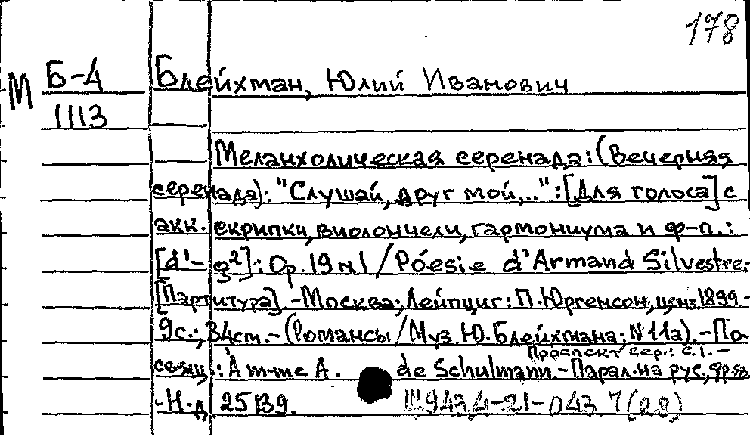 178
М Б-4 Блейхман, Юлий Иванович
1113
Меланхолическая серенада: (Вечерняя
серенада): "Слушай, друг мой,..": [Для голоса] с
акк. скрипки, виолончели, гармониума и ф-п.:
[d¹-g²]: Op. 19 №1 / Póesie d'Armand Silvestre.
[Партитура]. - Москва; Лейпциг: П. Юргенсон, ценз. 1899.-
9с.; 34см. - (Романсы / Муз. Ю. Блейхмана; N 11а). - По-
свящ.: À m-me A. de Schulmann. - Парал. на рус., фр.яз.
- Н.д. 25139. Ш943.4-21-043.7(28)